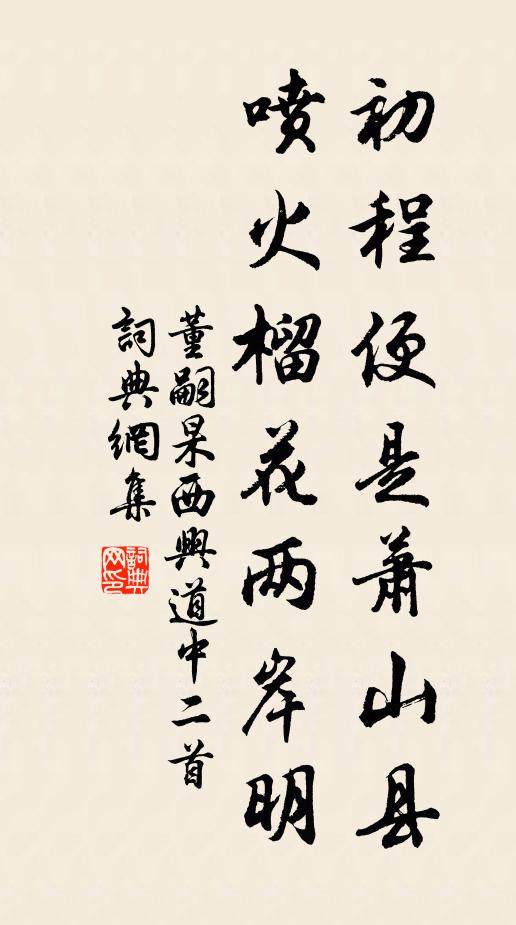 初程便是萧山县
喷火榴花两岸明
董嗣杲西興道中二首
詞典網集
詞典网印